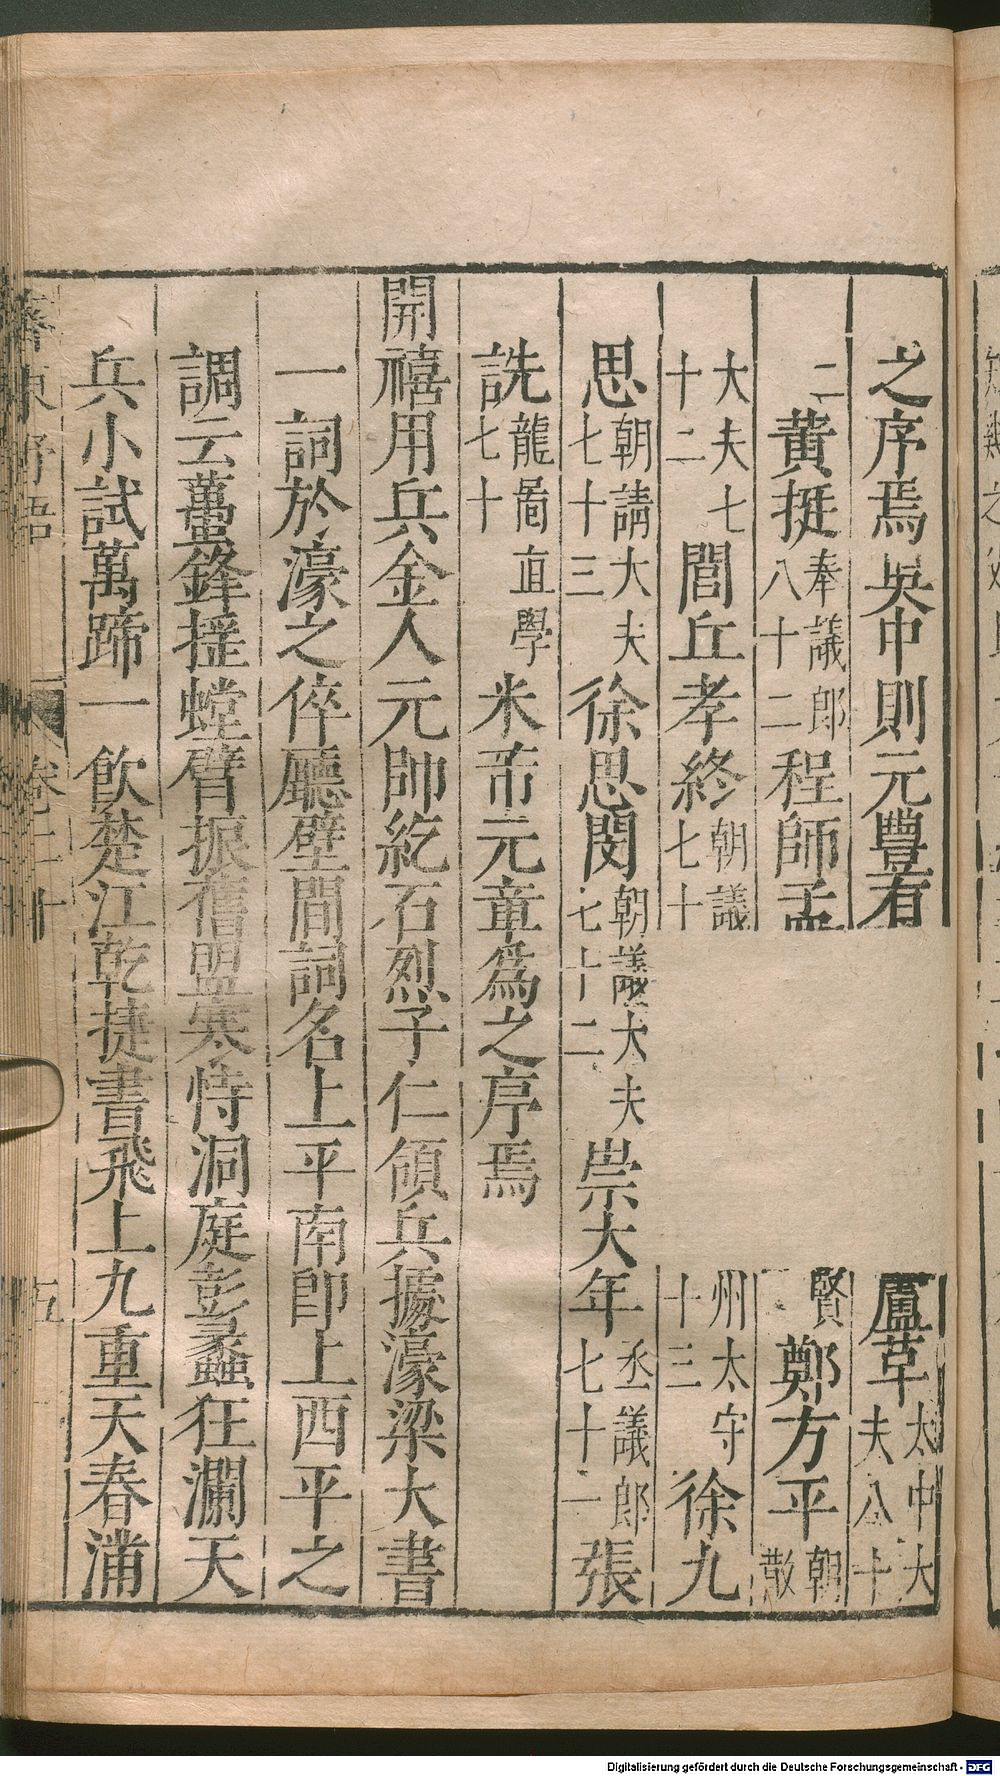 之序焉吳中則元豐有盧革太中大夫八十
二黃挺奉議郎八十二程師孟賢鄭方平朝散
大夫七十二閭丘孝終朝議七十州太守十三徐九
思朝請大夫七十三徐思閔朝議大夫七十二崇大年丞議郎七十一張
詵龍啚直學七十米芾元章為之序焉
開禧用兵金人元帥紇石烈子仁領兵據濠梁大書
一詞於濠之倅廳壁間詞名上平南即上西平之
調云蠆鋒搖螳臂振舊盟寒恃洞庭彭蠡狂瀾天
兵小試萬蹄一飲楚江乾捷書飛上九重天春滿
齊東野語
卷二十
五
Digitalisierung gefördert durch die Deutsche Forschungsgemeinschaft - DFG